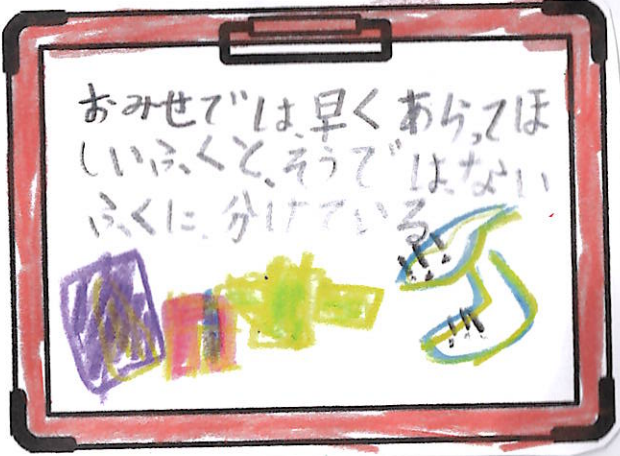 おみせでは、早くあらってほ
しいふくと、そうではない
ふくに、分けている